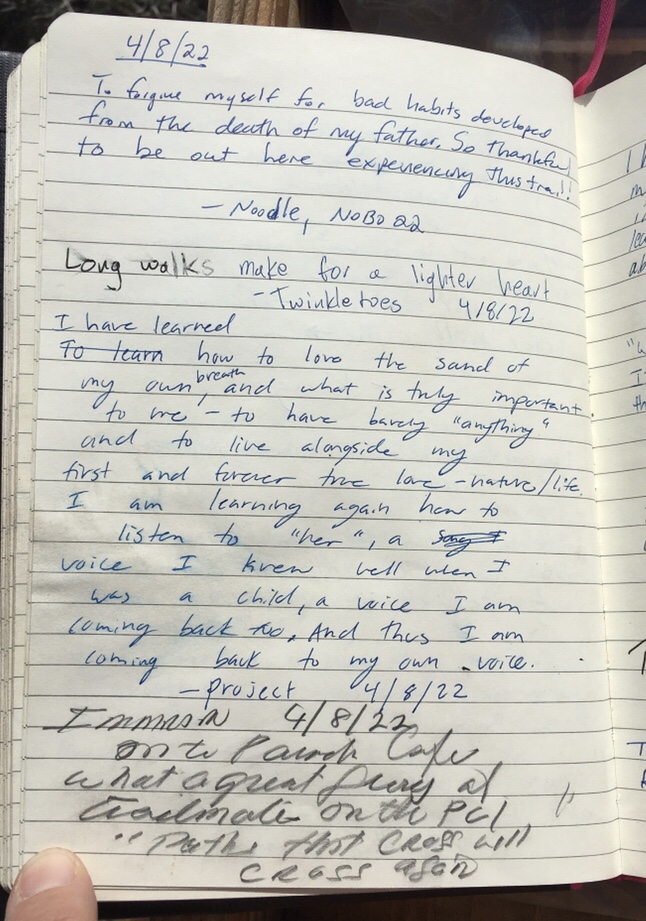 4/8/22
To forgive myself for bad habits developed
from the death of my father. So thankful
to be out here experiencing this trail!
- Noodle, NOBO 22
Long walks make for a lighter heart
- Twinkletoes 4/8/22
I have learned
To learn how to love the sand of
my own breath, and what is truly important
to me - to have barely "anything"
and to live alongside my
first and forever true love - nature/life.
I am learning again how to
listen to "her", a song I
voice I knew well when I
was a child, a voice I am
coming back too. And thus I am
coming back to my own voice.
- project 4/8/22
4/8/22
on to Cafe
what a great of
on the PCT
"Paths that cross will
cross again